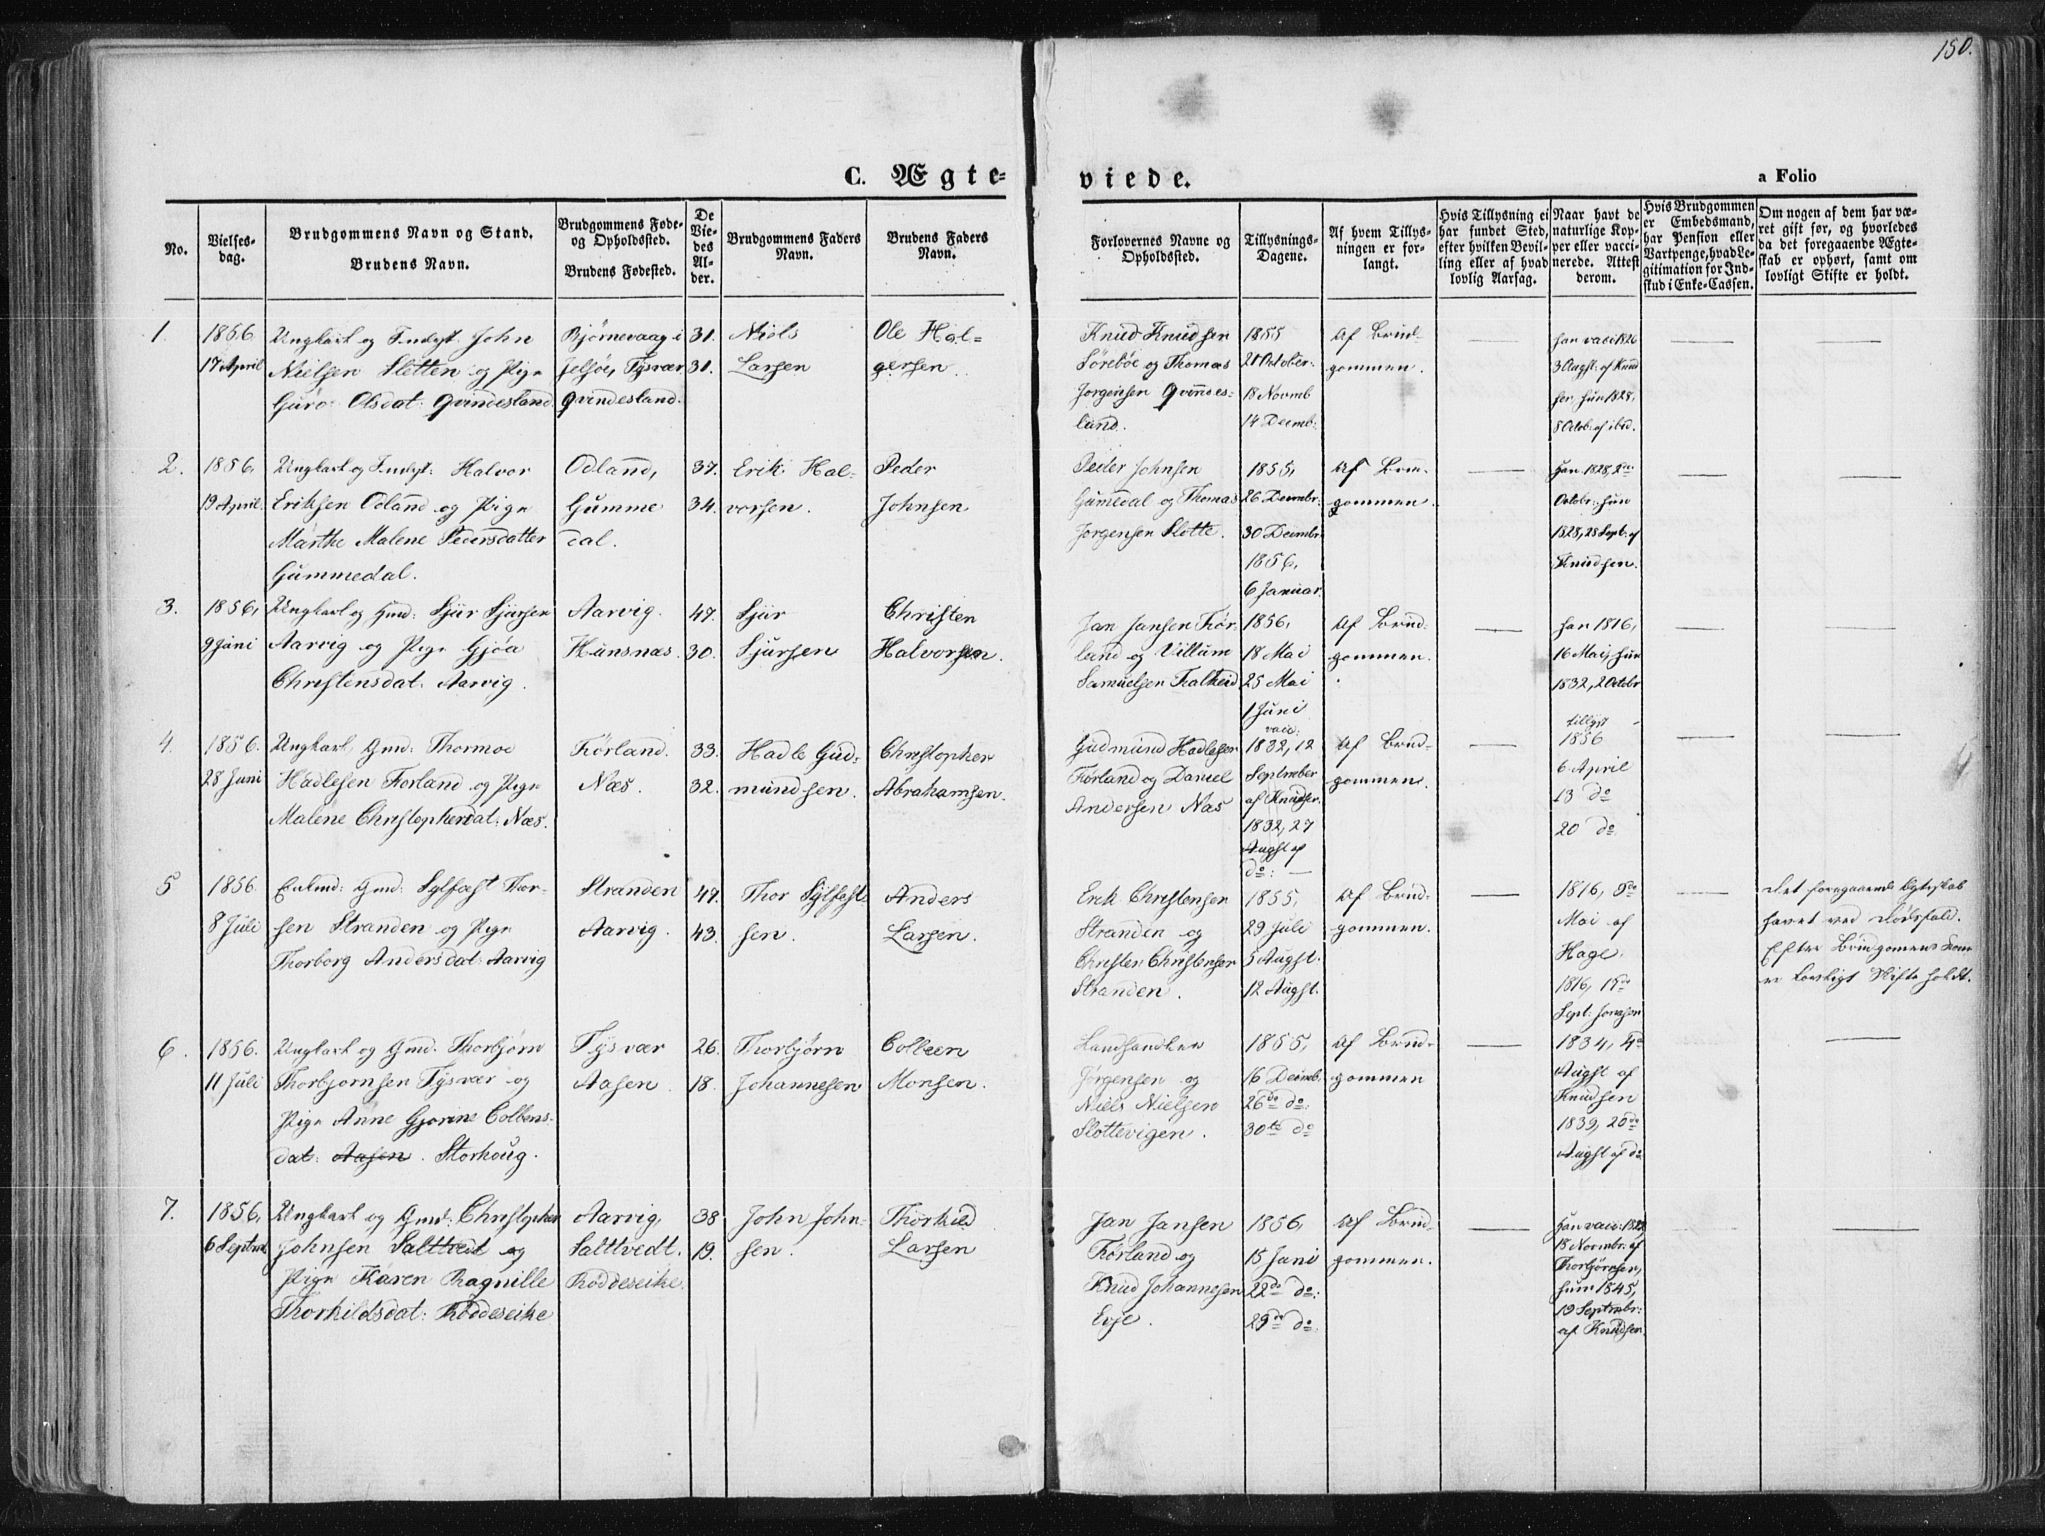 150.
C. Ægte-
viede.
a Folio
No.
Vielses-
dag.
Brudgommens Navn og Stand.
Brudens Navn.
Brudgommens Føde-
og Opholdssted.
Brudens Fødested.
De
Vie-
des
Al-
der.
Brudgommens Faders
Navn.
Brudens Faders
Navn.
Forlovernes Navne og
Opholdssted.
Tillysnings-
Dagene.
Af hvem Tillys-
ningen er for-
langt.
Hvis Tillysning ei
har fundet Sted,
efter hvilken Bevil-
ling eller af hvad
lovlig Aarsag.
Naar havt de
naturlige Kop-
per eller vacci-
nerede. Attest
derom.
Hvis Brudgommen
er Embedsmand,
har Pension eller
Vartpenge, hvad Le-
gitimation for Ind-
skud i Enke-Cassen.
Om nogen af dem har væ-
ret gift før, og hvorledes
da det foregaaende Ægte-
skab er ophørt, samt om
lovligt Skifte er holdt.
1.
1856
17 April
Ungkarl og John
Nielsen Sletten og Pige
Guro Olsdat: Qvindesland
Bjørnevaag i
Jelsøe, Tysvær
Qvindesland.
31.
31.
Niels
Larsen
Ole Hal-
gersen.
Knud Knudsen
Sörebøe og Thomas
Jørgensen Qvinnes-
land.
1855
21 October
18 Novmb
14 Decmb:
Af Brud-
gommen.
han vacc 1826
3 Augst: af Knud
sen, hun 1828,
8 Octob: af ibid.
2.
1856,
19 April.
Ungkarl og Halvor
Eriksen Odland og Pige
Marthe Malene Pedersdatter
Gummedal.
Odland,
Gumme
dal.
37.
34.
Erik Hal-
vorsen.
Peder
Johnsen
Peder Johnsen
Gumedal og Thomas
Jørgensen Slotte.
1855,
26 Decmbr:
30 Decmbr
1856,
6 Januar.
Af Brud-
gommen.
Han 1828, 2de
Octobr: hun
1828, 28 Sept: af
Knudsen.
3.
1856,
9 Juni
Ungkarl og Gmd: Sjur Sjursen
Aarvig og Pige Gjøa
Christensdat: Aarvig.
Aarvig.
Hunsnæs.
47.
30.
Sjur
Sjursen
Christen
Halvorsen.
Jan Jansen Før-
land og Villum
Samuelsen Falkeid
1856,
18 Mai
25 Mai
1 Juni
Af Brud-
gommen.
han 1816,
16 Mai, hun
1832, 2 Octobr
4.
1856.
28 Juni
Ungkarl, Gmd: Thormoe
Hadlesen Førland og Pige
Malene Christophersdat: Næs.
Førland.
Næs.
33.
32.
Hadle Gud-
mundsen.
Christopher
Abrahamsen.
Gudmund Hadlesen
Førland og Daniel
Andersen Næs
vacc:
1832, 12
September
af Knudsen.
1832, 27
Augst af
do: —
Af Brud-
gommen.
tillyst
1856
6 April
13 do
20 do
5
1856.
8 Juli
Enkmd: Gmd: Sylfæst Thor-
sen Stranden og Pige
Thorborg Andersdat: Aarvig
Stranden
Aarvig.
47.
43.
Thor Sylfæst-
sen.
Anders
Larsen.
Erik Christensen
Stranden og
Christen Christensen
Stranden.
1855,
29 Juli
5 Augst.
12 Augst.
Af Brud-
gommen.
1816, 9de
Mai af
Hage.
1816, 15de
Sept: Jonassen
Det foregaaende Ægteskab
hævet ved Dødsfald.
Efter Brudgomens Kone
er Lovligt Skifte holdt.
6.
1856.
11 Juli
Ungkarl og Gmd. Thorbjørn
Thorbjornsen Tysvær og
Pige Anne Gjorine Colbens-
dat: Aasen. Storhoug.
Tysvær
Aasen.
26.
18.
Thorbjørn
Johannesen
Colbeen
Monsen.
Landhandler
Jørgensen og
Niels Nielsen
Slottevigen.
1855,
16 Decmb.
26de do:
30te do
Af Brud-
gommen
1834, 4de
Augst af
Knudsen
1839, 20de
Augst af do
7.
1856,
6 Septmbr
Ungkarl og Gmd: Christopher
Johnsen Salttvedt og
Pige Karen Ragnille
Thorkildsdat: Røddeseike
Aarvig,
Salttvedt.
Røddeseike.
38
19.
John John-
sen.
Thorkild
Larsen
Jan Jansen
Førland og
Knud Johannesen
Evje.
1856,
15 Juni
22de do:
29de do:
Af Brud-
gommen.
Han vacc: 1822,
18 Novmbr: af
Thorbjørnsen,
hun 1845,
19 Septmbr:
af Knudsen.